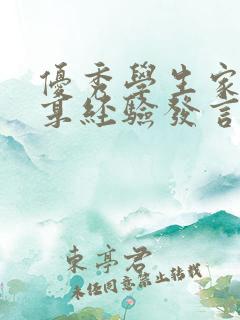 優秀學生家
某經驗發言
東亭君
未經同意禁止轉載